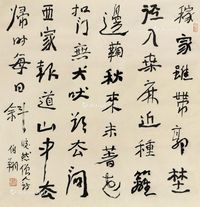 移家雖帶郭埜
徑入桑麻近種籬
邊鞠秋來未著花
扣門無犬吠欲去問
西家報道山中去
歸時每日斜
皎然僧詩
伯翔